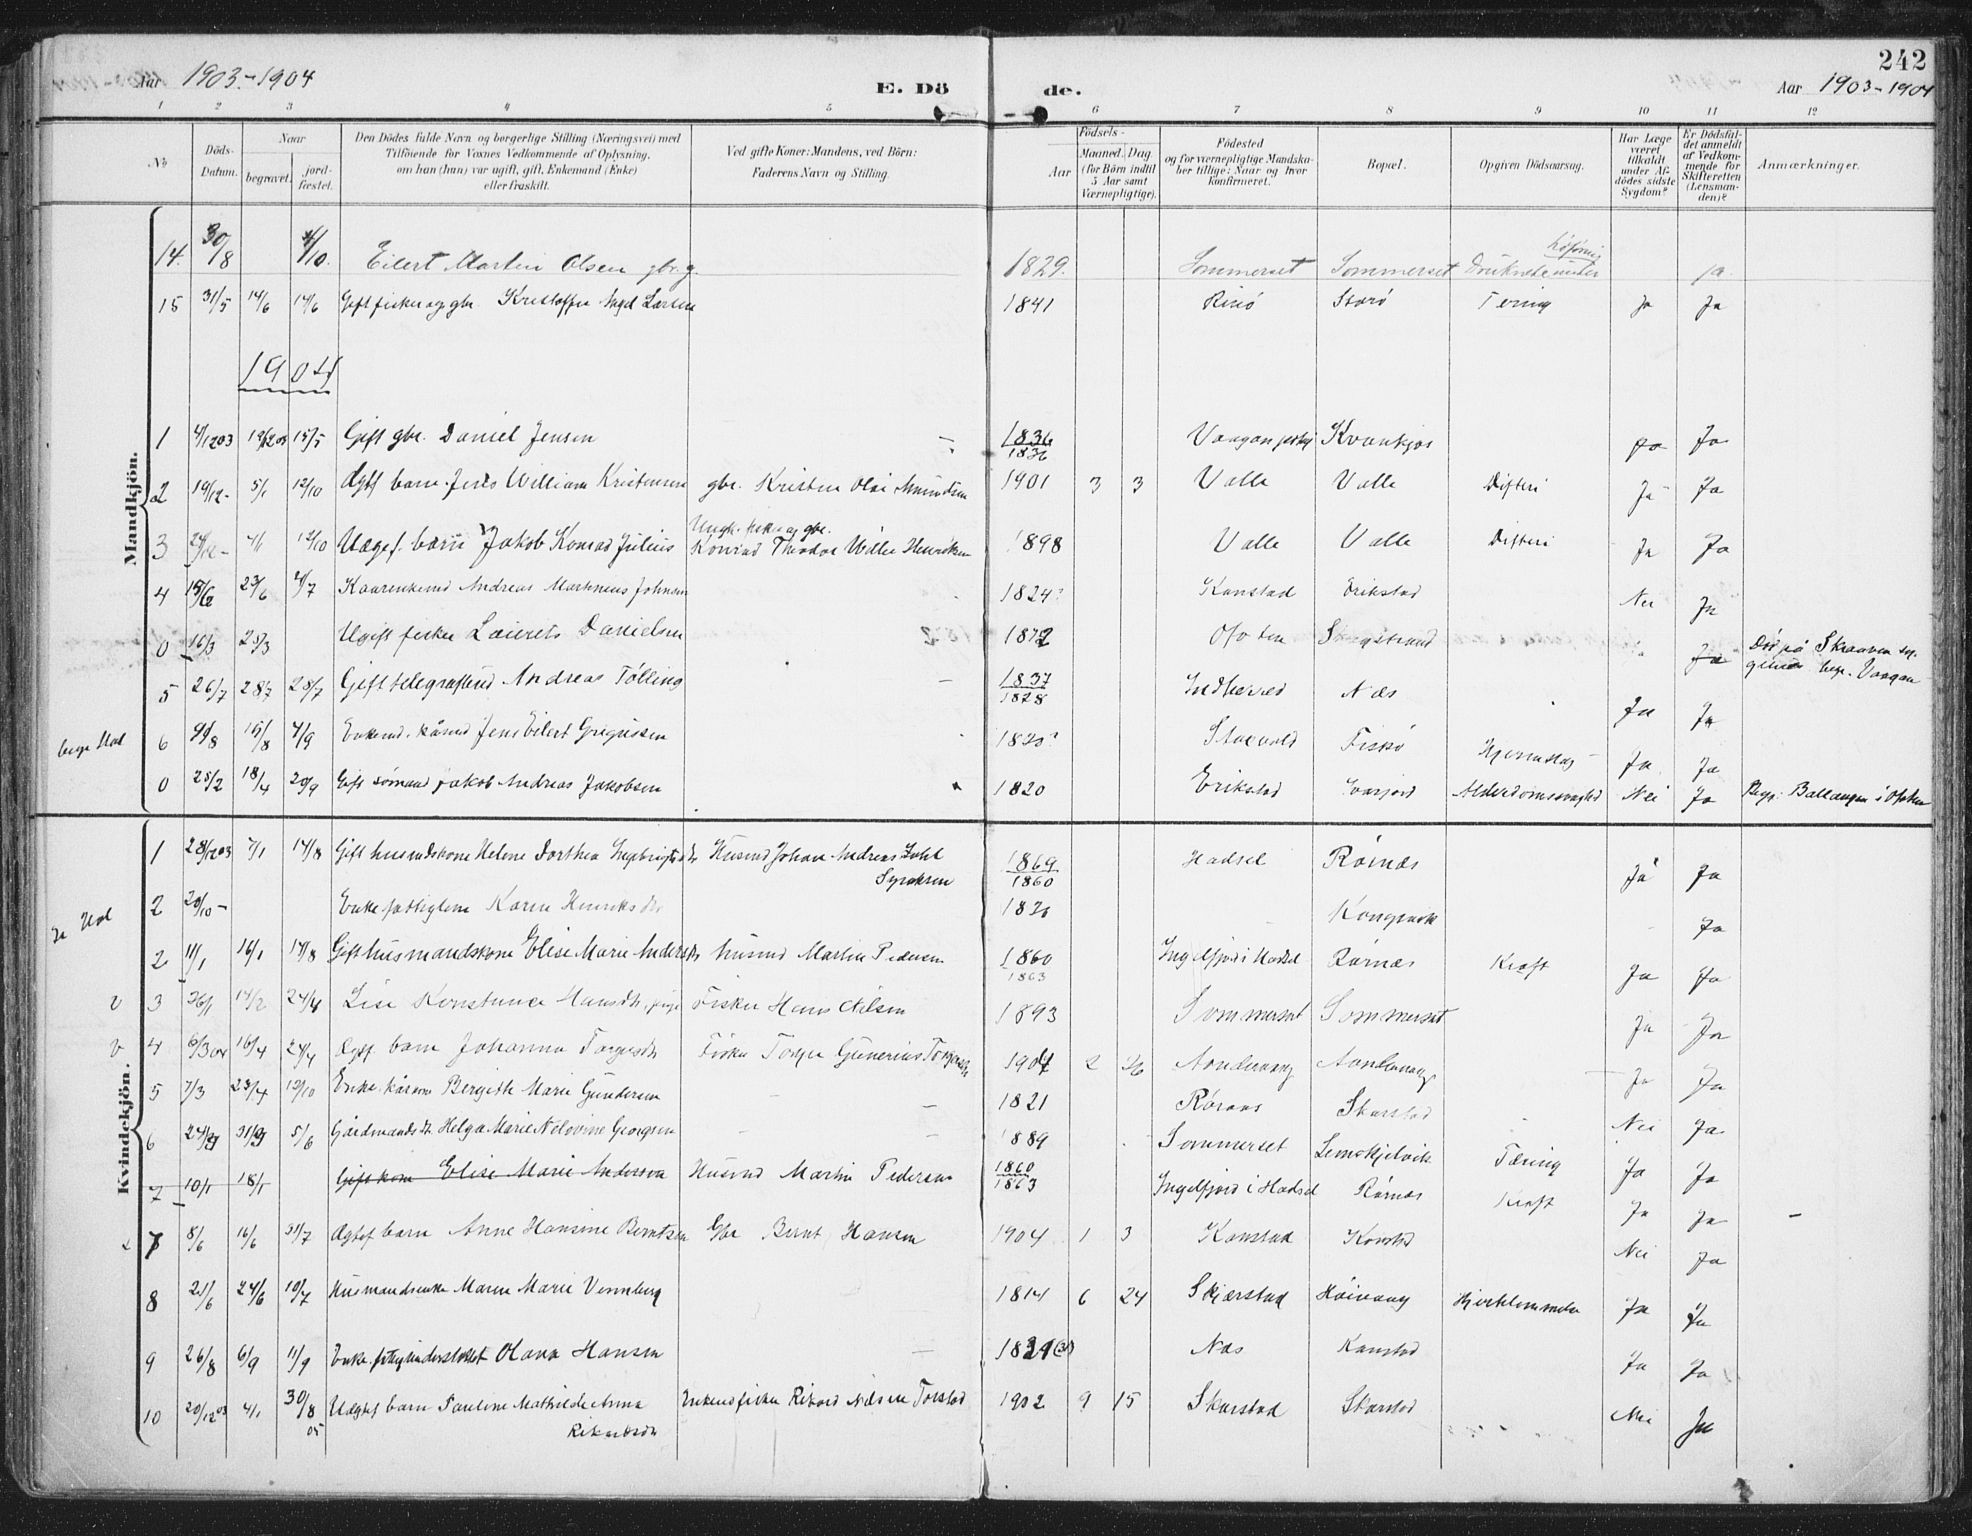 242
Aar 1903-1904 E. Dö de. Aar 1903-1904
1 2 3 4 5 6 7 8 9 10 11 12
No Döds-Datum. Naar begravet. jord-fæstet. Den Dödes fulde Navn og borgerlige Stilling (Næringsvei) med Tilföiende for Voxnes Vedkommende af Oplysning, om han (hun) var ugift, gift, Enkemand (Enke) eller fraskilt. Ved gifte Koner: Mandens, ved Börn: Faderens Navn og Stilling. Födsels- Aar Maaned. Dag (for Börn indtil 5 Aar samt Værnepligtige). Födested og for værnepligtige Mandskaber tillige: Naar og hvor konfirmeret. Bopæl. Opgiven Dödsaarsag. Har Læge været tilkaldt under Afdödes sidste Sygdom? Er Dödsfaldet anmeldt af Vedkommende for Skifteretten (Lensmanden)? Anmærkninger.
Mandkjön.
14. 30/8 4/10. Eilert Martin Olsen gbr.g. 1829. Sommerset Sommerset Druknede under ja.
15 31/5 14/6 14/6 Gift fisker og gbr. Kristoffer Angel Larsen 1841 Risö Storö Tering Ja Ja
1904
1 4/12 03 15/5 Gift gbr. Daniel Jensen - 1836 1836 Vaagan Kvankjos Ja Ja
2 19/12- 5/1 12/10 Ægtef barn Jens William Kristensen gbr. Kristen Olai Amundsen 1901 3 3 Valle Valle Difteri Ja Ja
3 4/1 12/10 Uægtef. barn Jakob Konrad Julius Ungk. fisker og gbr. Konrad Theodor Henriksen 1898 Valle Valle Difteri Ja Ja
4 23/6 4/7 Kaarenkemd Andreas Martineus Johnsen 1824? Kanstad Erikstad Nei Ja
0 16/3 25/3 Ugift fisker Laurets Danielsen 1872 Ofoten Ja Död på Skraaven begr. Vaagan
5 26/7 28/7 28/7 Gift telegrafbud Andreas Tölling - 1837 1828 Indherred Næs Ja Ja
6 9/8 15/8 4/9 Enkemd. kårmd Jens Eilert Grigussen 1820? Fiskö Ja Ja
0 25/2 18/4 20/9 Gift sömand Jakob Andreas Jakobsen 1820 Erikstad Alderdomssvaghed Nei Ja Begr. Ballangen i Ofoten
Kvindekjön.
1 28/12 03 7/1 14/8 Gift husmdskone Helene Dorthea Ingebrigtsdtr Husmd Johan Andreas 1869 1860 Hadsel Rörnæs Ja Ja
2 20/10 - Enke fattiglem Karen Henriksdtr 1826 Kongsvik Ja
2 11/1 16/1 14/8 Gift husmandskone Elise Marie Andersdtr Husmd Martin Pedersen 1860 1863 Ingelfjord i Hadsel Rörnæs Kræft Ja Ja
v 3 26/1 14/2 24/4 Lise Konstance Hansdtr, pige Fisker Hans Nilsen 1893 Sommerset Sommerset Ja Ja
v 4 6/3 04 16/4 24/4 Ægtef barn Johanna Torgersdtr Fisker Torger Gunerius Torgersen 1904 2 26 Ja Ja
5 7/3 23/4 12/10 Enke kårkone Bergith Marie Gundersen - - 1821 Röraas Skarstad Nei Ja
6 5/6 Gårdmandsdtr. Helga Marie Nelovine Georgsen 1889 Sommerset Tæring Ja Ja
7 10/1 18/1 Gift kone Elise Marie Andersen Husmd Martin Pedersen 1860 1863 Ingelfjord i Hadsel Rörnæs Kræft Ja Ja -
7 8/6 16/6 31/7 Ægtef barn Anne Hansine Berntsen Gbr Bernt Hansen 1904 1 3 Kanstad Kanstad Nei Ja
8 21/6 24/6 10/7 Husmandsenke Maren Marie Vennberg 1814 6 24 Skjerstad Höivaag Ja Ja
9 26/8 6/9 11/9 Enke Olava Hansen - Næs Kanstad Ja Ja
10 20/12 03 4/1 30/8 05 Uægtef barn Pauline Mathilde Anna Rikardsdtr Enkemd fisker Rikard Nilsen Torstad 1902 9 15 Skarstad Skarstad Nei Ja